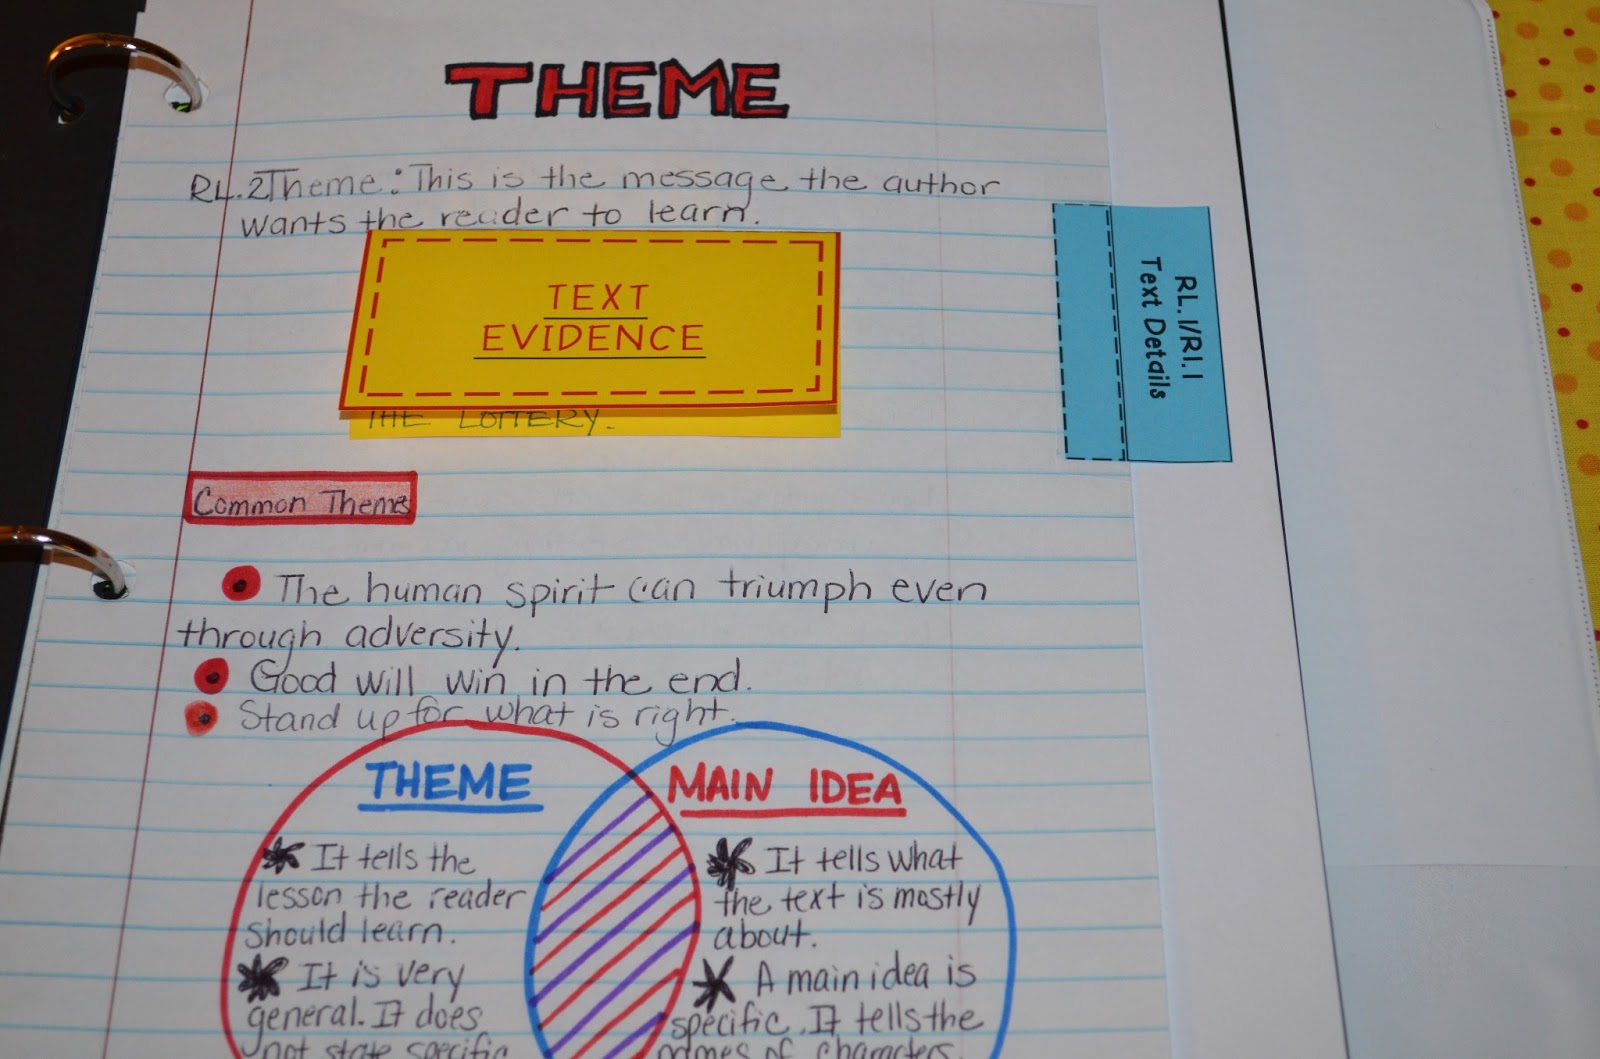 THEME
RL.2 Theme: This is the message the author
wants the reader to learn.
TEXT
EVIDENCE
THE LOTTERY.
RL.1/RI.1
Text Details
Common Themes
The human spirit can triumph even
through adversity.
Good will win in the end.
Stand up for what is right.
THEME
It tells the
lesson the reader
should learn.
It is very
general. It does
not state specific
MAIN IDEA
It tells what
the text is mostly
about.
A main idea is
specific. It tells the
names of characters,